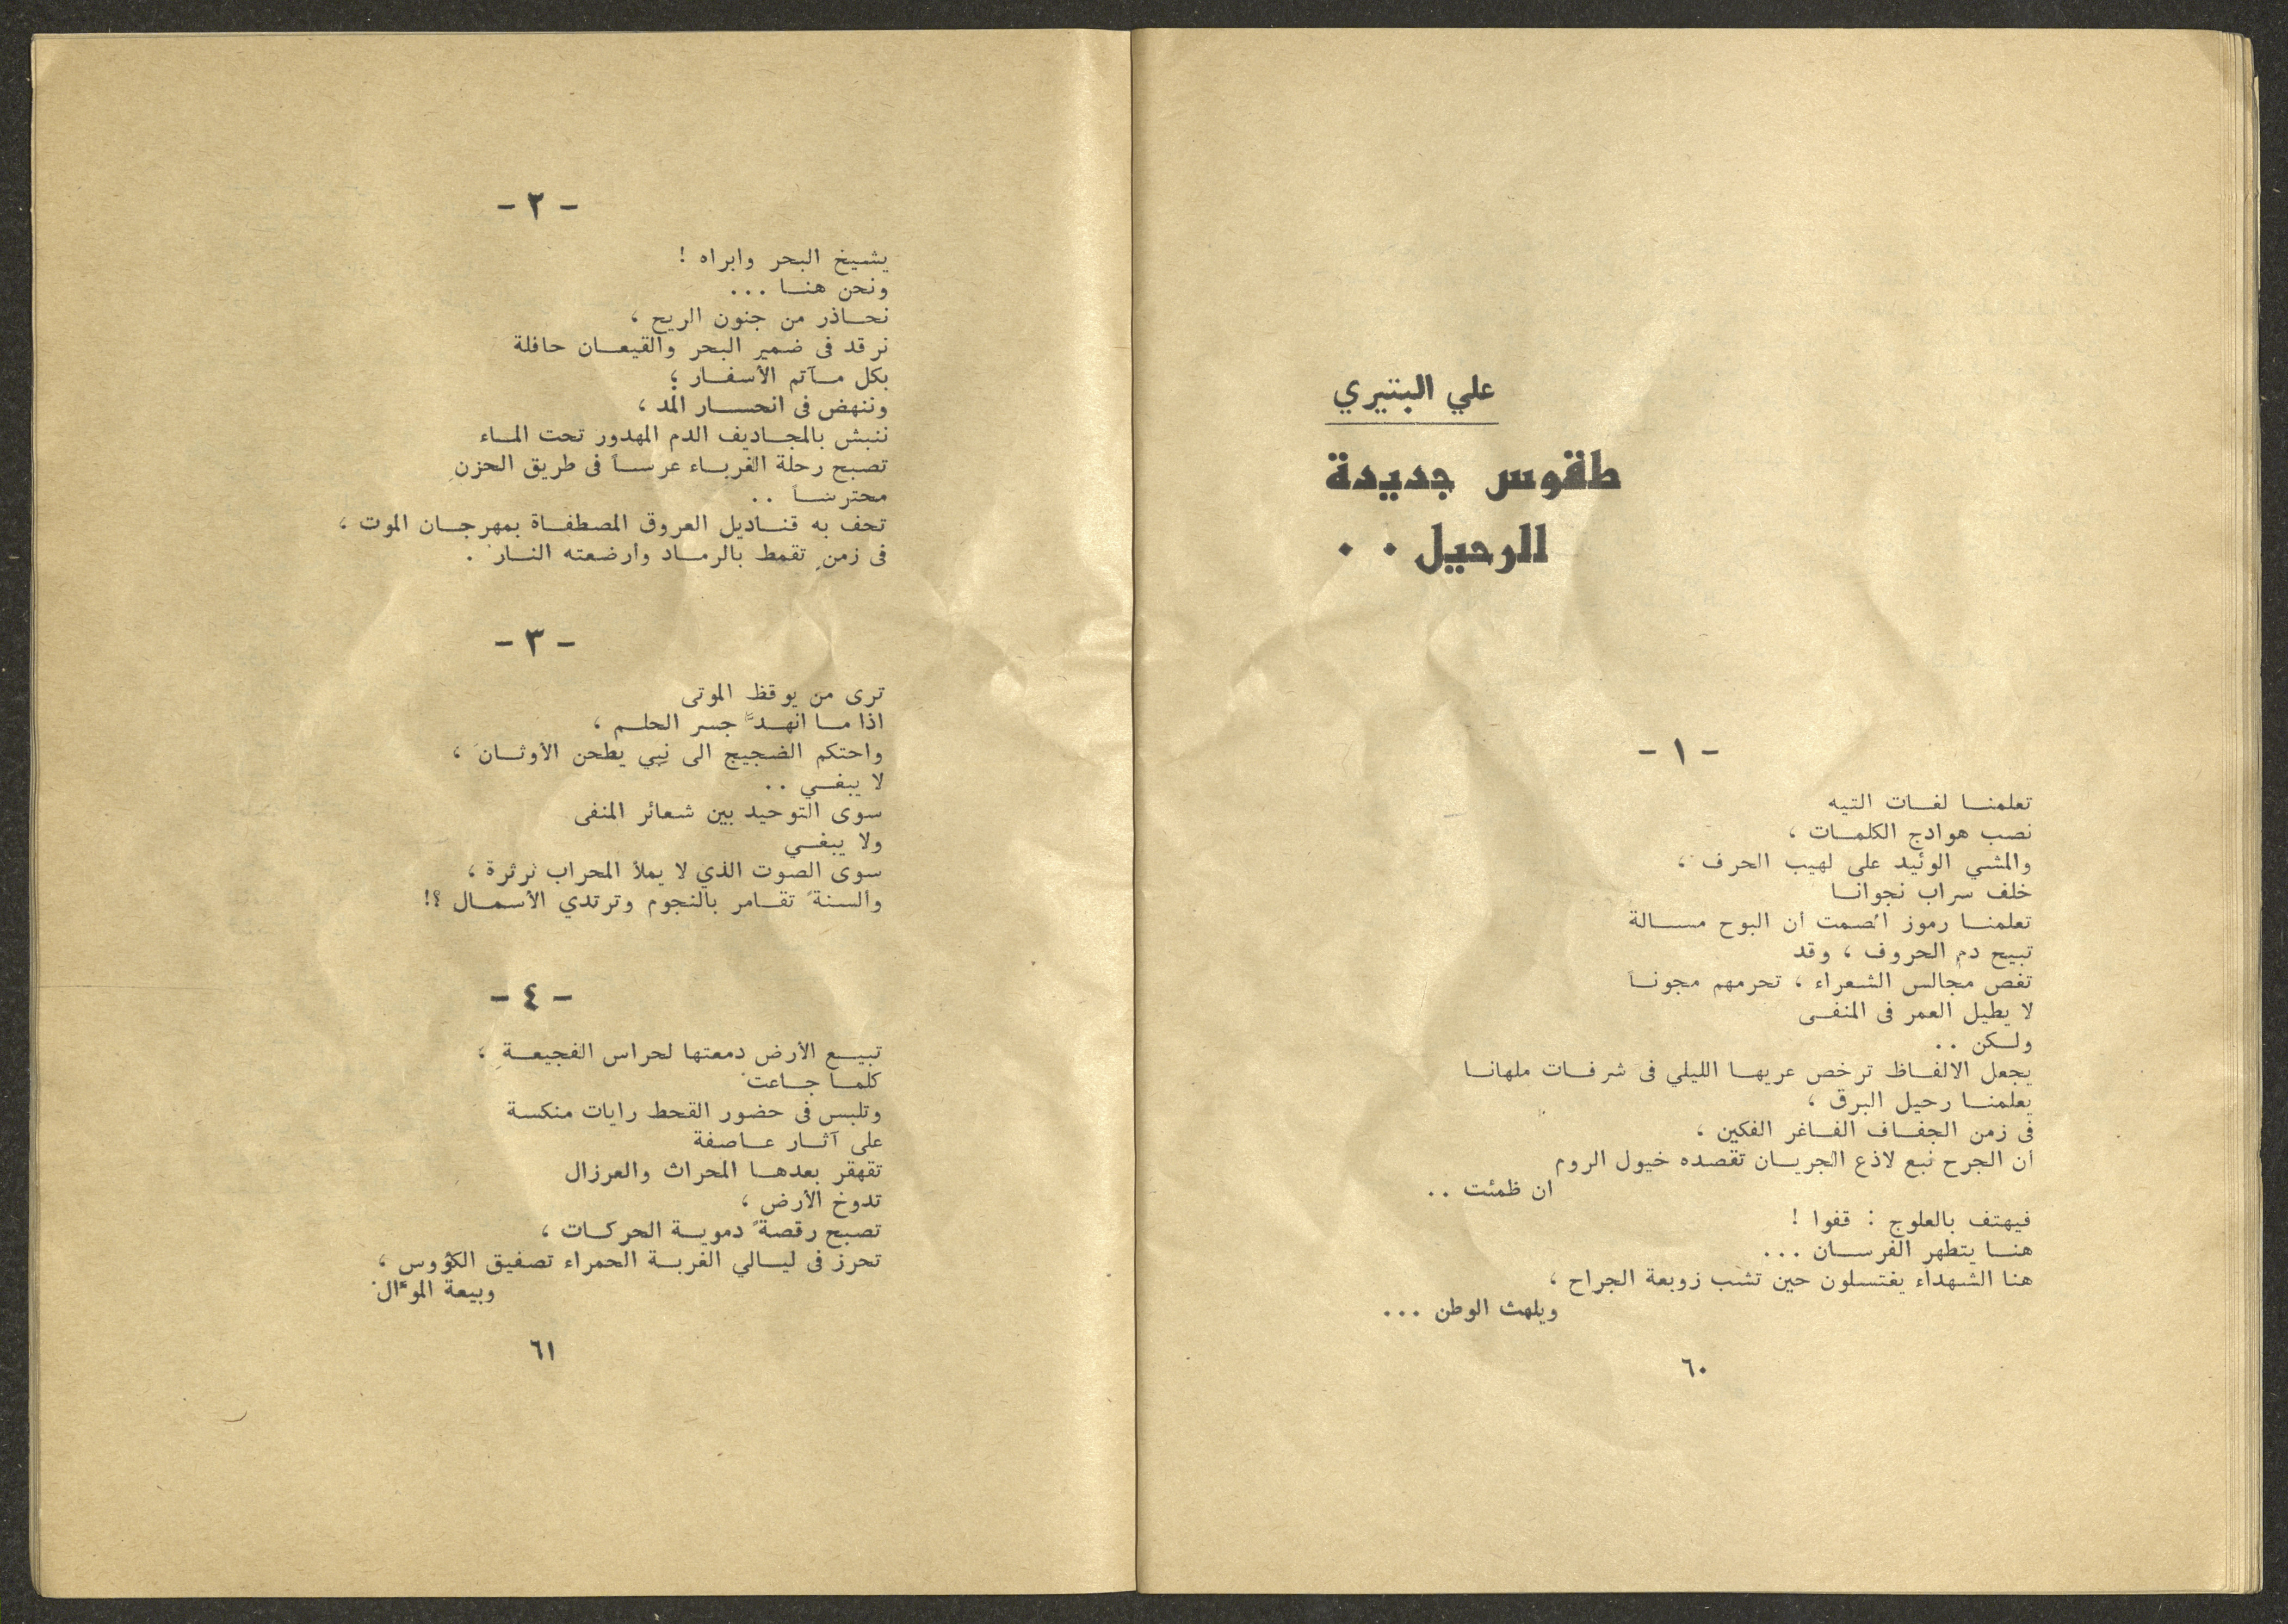 علي البتيري
طقوس جديدة
الرحيل . .
- ١ -
تعلمنا لغات التيه
نصب هوادج الكلمات ،
والمشي الوئيد على لهيب الحرف ،
خلف سراب نجوانا
تعلمنا رموز الصمت ان البوح مسالة
تبيح دم الحروف ، وقد
تغص مجالس الشعراء ، تحرمهم مجوناً
لا يطيل العمر في المنفى
ولكن . .
يجعل الالفاظ ترخص عريها الليلي في شرفات ملهانا
يعلمنا رحيل البرق ،
في زمن الجفاف الفاغر الفكين ،
ان الجرح نبع لاذع الجريان تقصده خيول الروم
ان ظمئت . .
فيهتف بالعلوج : قفوا !
هنا يتطهر الفرسان . . .
هنا الشهداء يغتسلون حين تشب زوبعة الجراح ،
ويلهث الوطن . . .
٦٠
- ٢ -
يشيخ البحر وابراه !
ونحن هنا . . .
نحاذر من جنون الريح ،
نرقد في ضمير البحر والقيعان حافلة
بكل مآتم الأسفار ؛
وننهض في انحسار المد ،
ننبش بالمجاديف الدم المهدور تحت الماء
تصبح رحلة الغرباء عرساً في طريق الحزنِ
محترساً . .
تحف به قناديل العروق المصطفاة بمهرجان الموت ،
في زمنٍ تقمط بالرماد وأرضعته النار .
- ٣ -
ترى من يوقظ الموتى
اذا ما انهدَّ جسر الحلم ،
واحتكم الضجيج الى نبي يطحن الأوثانَ ،
لا يبغي . .
سوى التوحيد بين شعائر المنفى
ولا يبغي
سوى الصوت الذي لا يملأ المحراب ثرثرة ،
وألسنةً تقامر بالنجوم وترتدي الأسمال ؟!
- ٤ -
تبيع الأرض دمعتها لحراس الفجيعةِ ،
كلما جاعتْ
وتلبس في حضور القحط رايات منكسة
على آثار عاصفة
تقهقر بعدها المحراث والعرزال
تدوخ الأرض ،
تصبح رقصةً دموية الحركات ،
تحرز في ليالي الغربة الحمراء تصفيق الكؤوس ،
وبيعة الموَّال
٦١